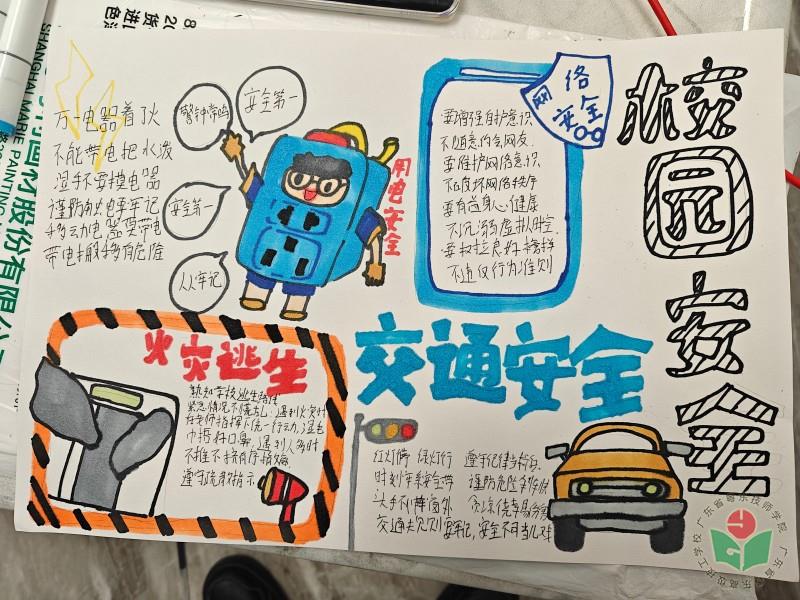 校园安全
万一电器着火
不能带电把水泼
湿手不要摸电器
谨防触电要牢记
移动电器要带电
带电搬移有危险
警钟常鸣
安全第一
安全第一
人人牢记
用电安全
网络安全
要增强自护意识
不随意约会网友
要维护网络意识
不破坏网络秩序
要有益身心健康
不沉溺虚拟时空
要树立良好榜样
不违反行为准则
火灾逃生
熟知学校逃生路径
紧急情况不慌乱：遇到火灾时
在老师指挥下统一行动，湿毛
巾捂好口鼻，遇到人多时
不推不挤有序撤离
遵守疏散指示
交通安全
红灯停 绿灯行
时刻牢系安全带
头手不伸窗外
交通法规要牢记，安全不可当儿戏
遵守纪律
谨防危险
SHANGHAI MARIE PAINTING
材股份有限公
广东省粤东技师学院